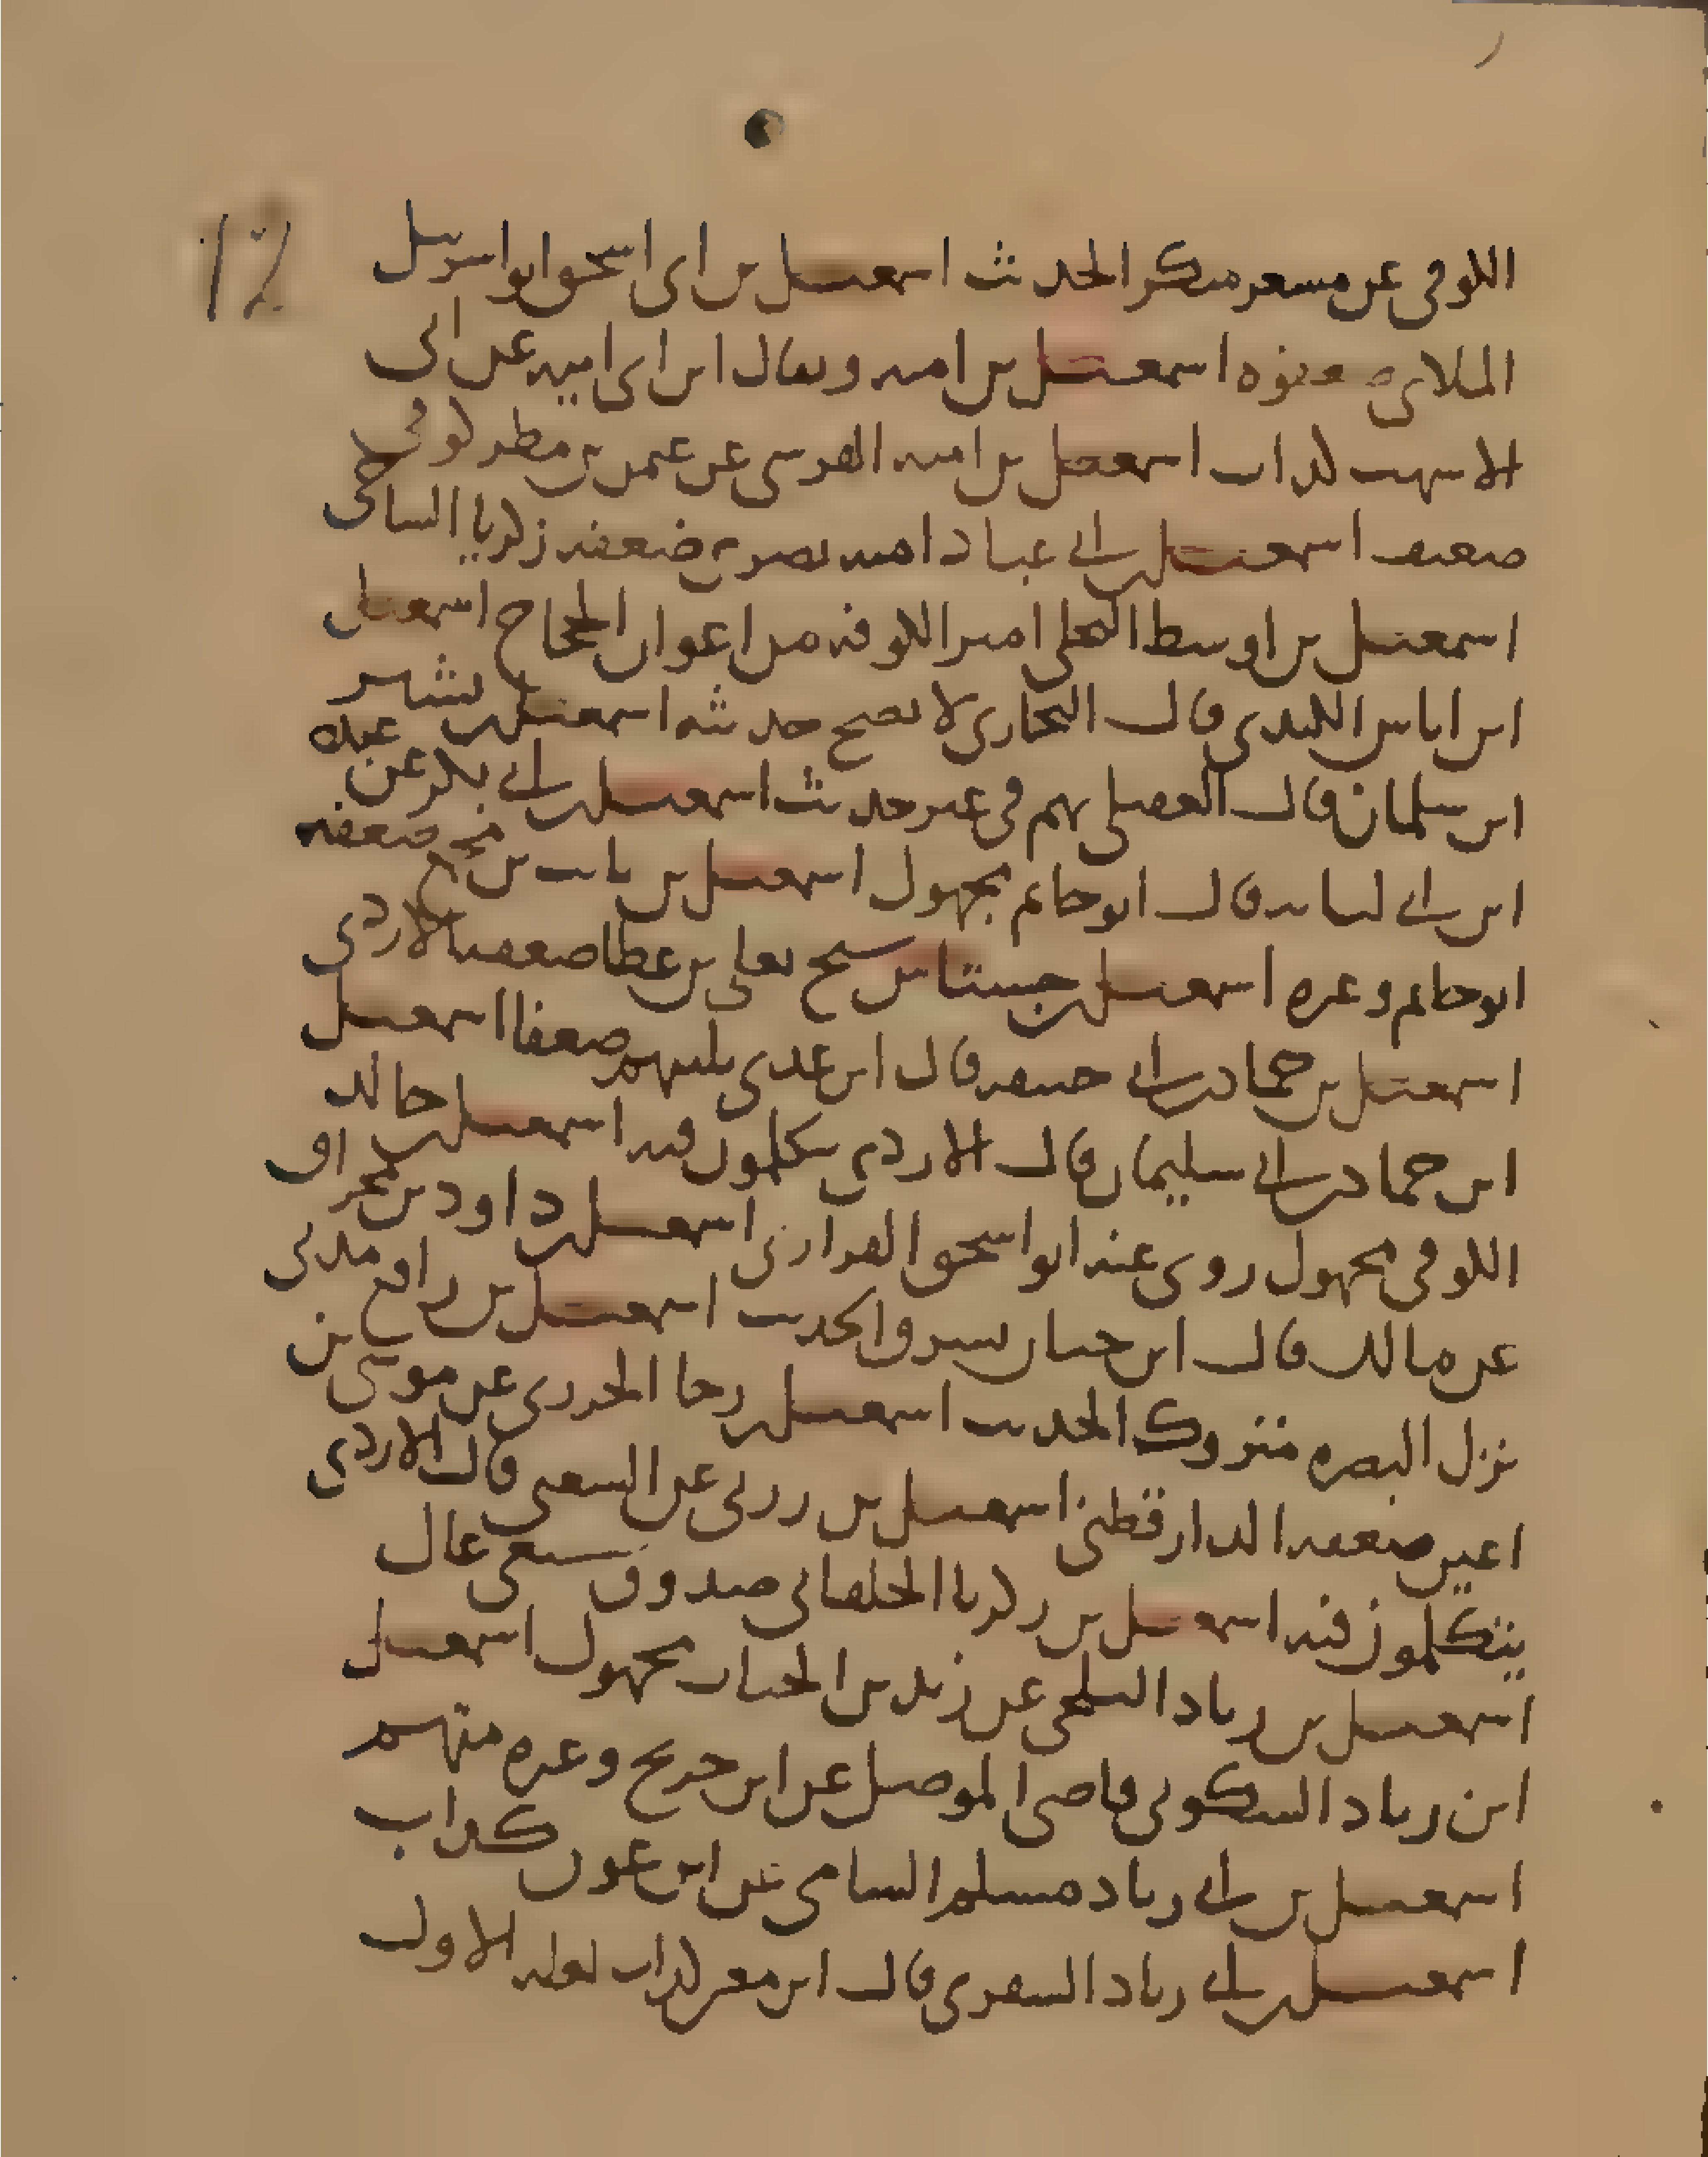 الكوفي عن مسعر منكر الحديث اسمعيل بن ابي اسحق ابو اسرييل
الملاي ضعفوه اسمعيل بن اميه ويقال ابن ابي اميه عن ابي
الاشهب كذاب اسمعيل بن اميه القرشي عن عمر بن مطر كوفي
ضعيف اسمعيل بن ابي عباد اميه بصري ضعفه زكريا الساجي
اسمعيل بن اوسط البجلي امير الكوفه من اعوان الحجاج اسمعيل
ابن اياس الكندي قال البخاري لا يصح حديثه اسمعيل بن بشر
ابن سلمان قال العقيلي يهم في غير حديث اسمعيل بن ابي بكر عن عبده
ابن ابي لبابه قال ابو حاتم مجهول اسمعيل بن ثابت بن مجمع ضعفه
ابو حاتم وغيره اسمعيل بن جستاس شيخ يعلى بن عطا ضعفه الازدي
اسمعيل بن حماد بن ابي حنيفه قال ابن عدي ثلثتهم ضعفا اسمعيل
ابن حماد بن ابي سليمان قال الازدي يتكلمون فيه اسمعيل بن خالد
الكوفي مجهول روى عنه ابو اسحق الفزاري اسمعيل بن داود بن مخراق
عن مالك قال ابن حبان يسرق الحديث اسمعيل بن رافع مدني
نزل البصره متروك الحديث اسمعيل بن رجا الجزري عن موسى بن
اعين ضعفه الدارقطني اسمعيل بن رزين عن الشعبي قال الازدي
يتكلمون فيه اسمعيل بن زكريا الخلقاني صدوق شيعي غال
اسمعيل بن زياد السلمي عن زيد بن الحباب مجهول اسمعيل
ابن زياد السكوني قاضي الموصل عن ابن جريج وغيره متهم
اسمعيل بن ابي زياد مسلم الشامي عن ابن عون كذاب
اسمعيل بن ابي زياد السقري قال ابن معين كذاب لعله الاول